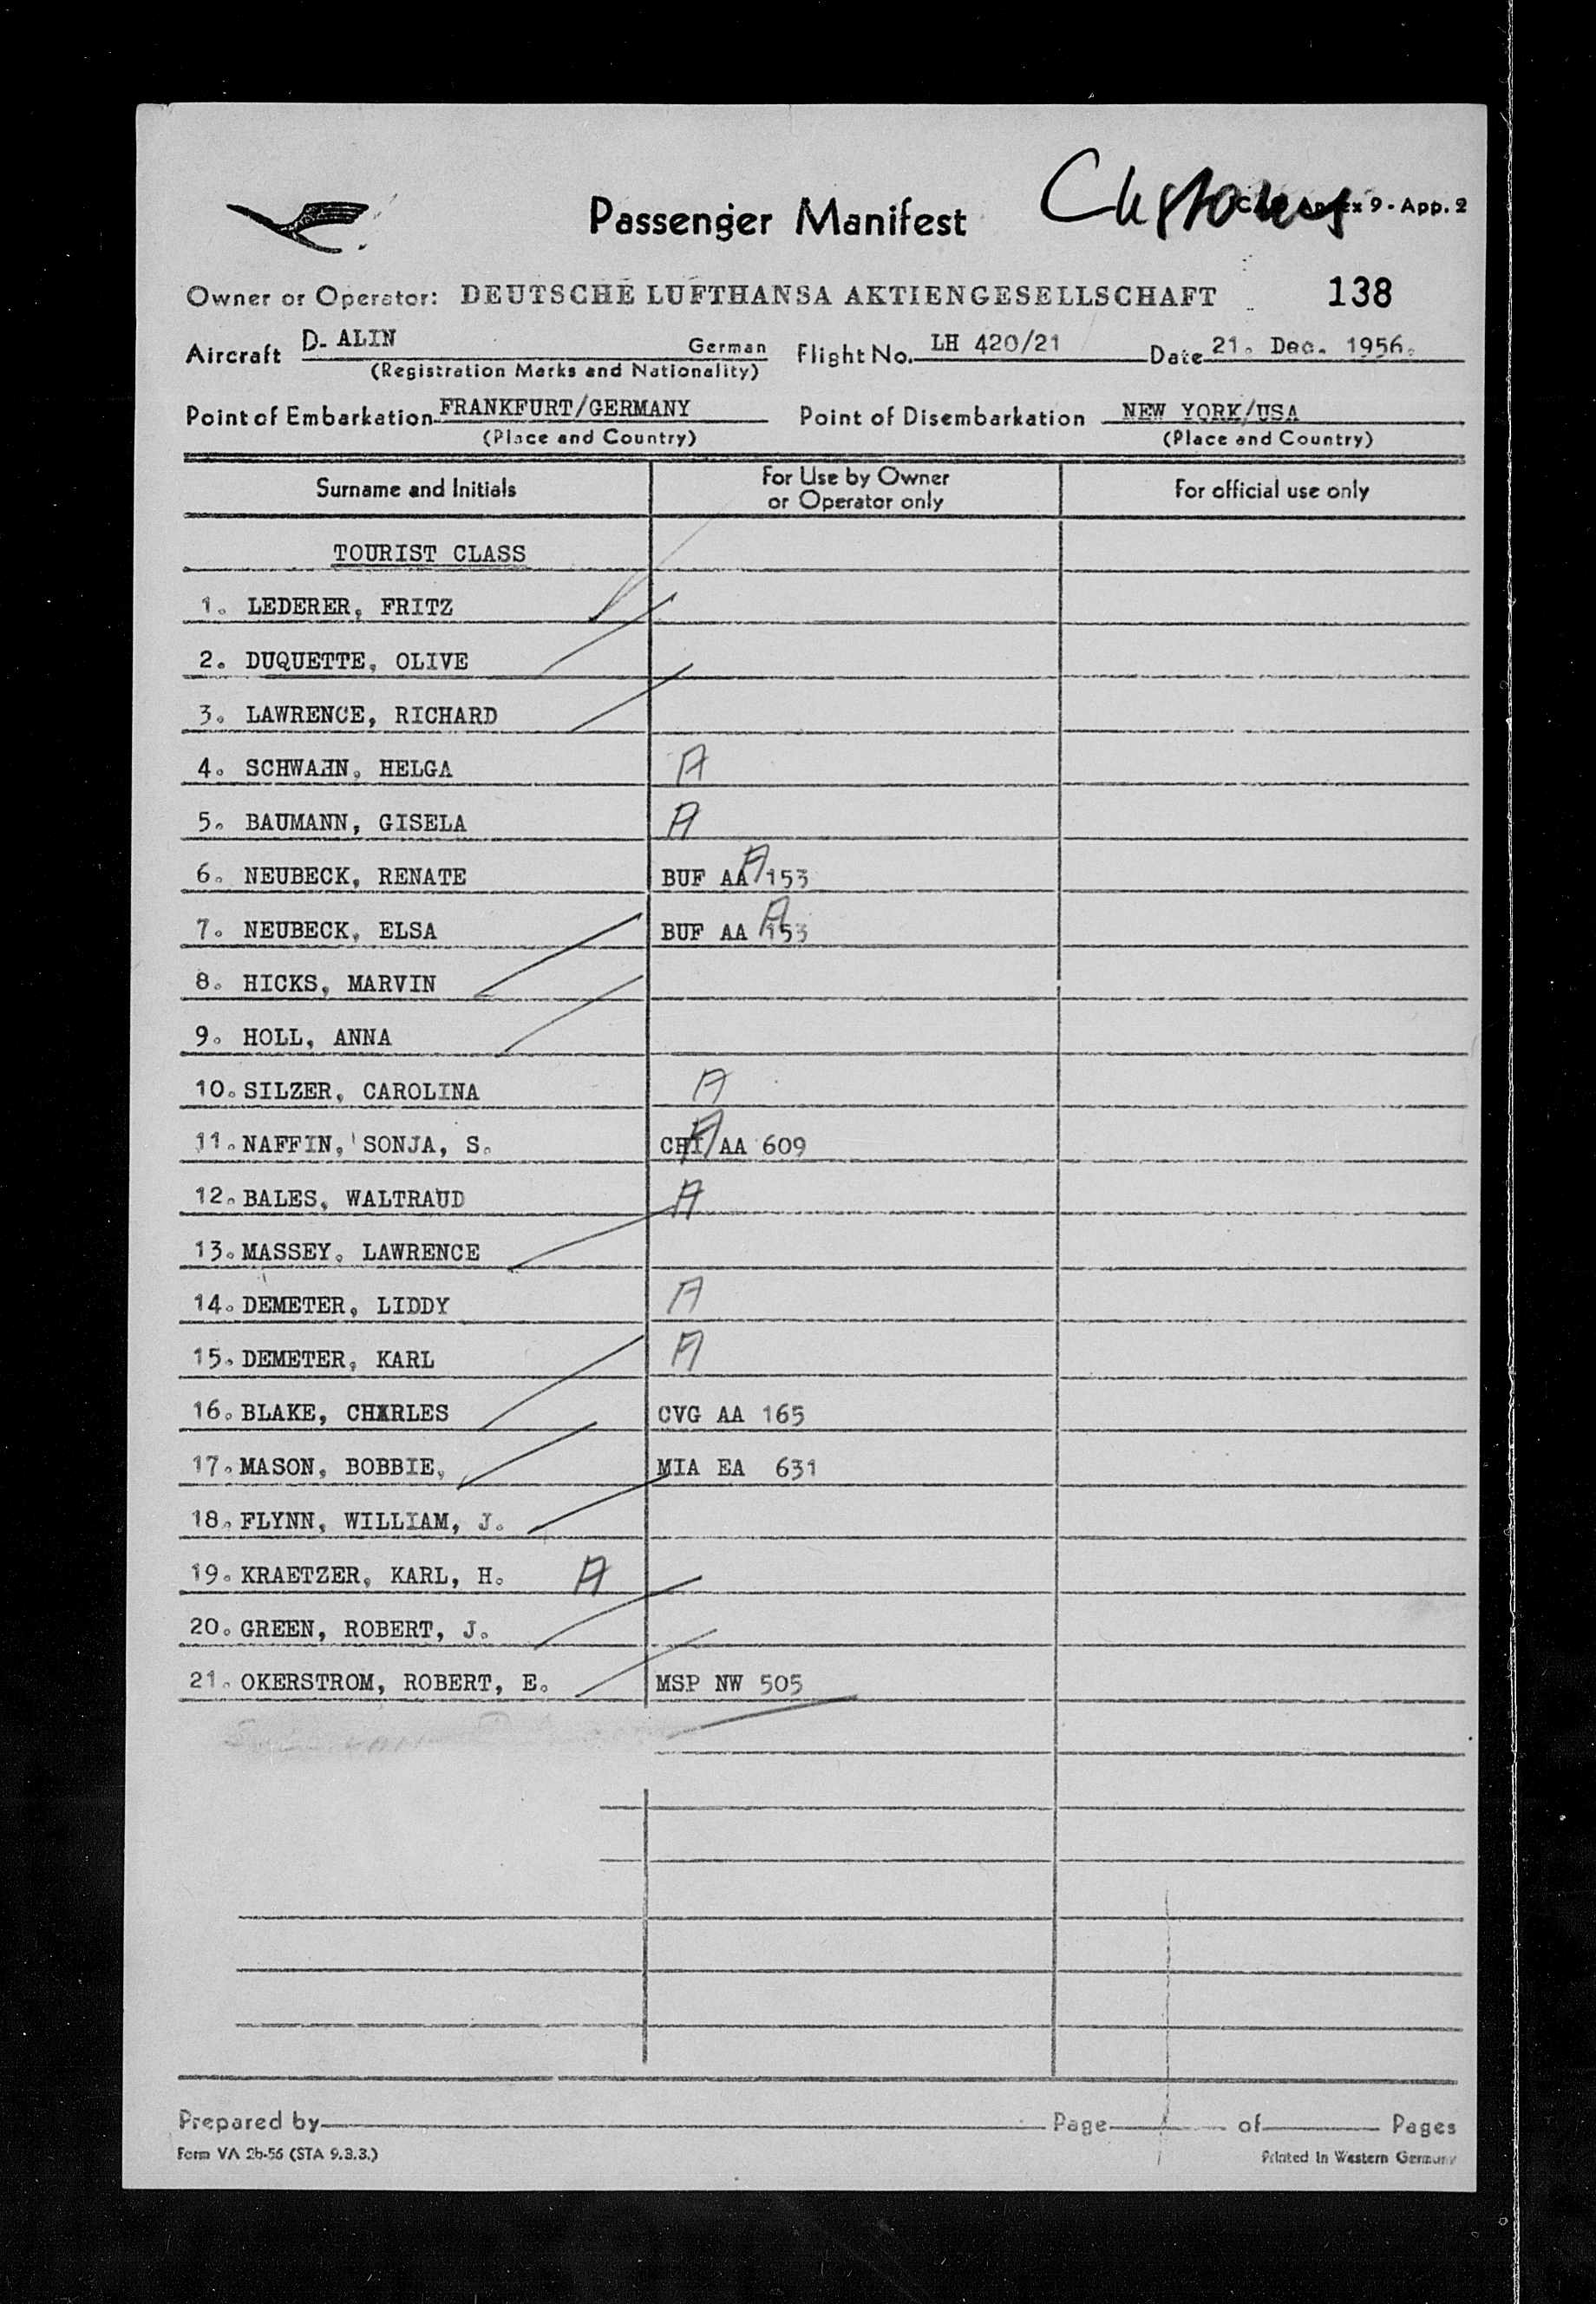 Customs
Passenger Manifest
9 - App. 2
Owner or Operator: DEUTSCHE LUFTHANSA AKTIENGESELLSCHAFT 138
Aircraft D- ALIN German Flight No. LH 420/21 Date 21. Dec. 1956.
(Registration Marks and Nationality)
Point of Embarkation FRANKFURT/GERMANY Point of Disembarkation NEW YORK/USA
(Place and Country) (Place and Country)
Surname and Initials For Use by Owner or Operator only For official use only
TOURIST CLASS
1. LEDERER, FRITZ
2. DUQUETTE, OLIVE
3. LAWRENCE, RICHARD
4. SCHWAHN, HELGA A
5. BAUMANN, GISELA A
6. NEUBECK, RENATE BUF AA 153 A
7. NEUBECK, ELSA BUF AA 153 A
8. HICKS, MARVIN
9. HOLL, ANNA
10. SILZER, CAROLINA A
11. NAFFIN, SONJA, S. CHI AA 609 A
12. BALES, WALTRAUD A
13. MASSEY, LAWRENCE
14. DEMETER, LIDDY A
15. DEMETER, KARL A
16. BLAKE, CHARLES CVG AA 165
17. MASON, BOBBIE, MIA EA 631
18. FLYNN, WILLIAM, J.
19. KRAETZER, KARL, H. A
20. GREEN, ROBERT, J.
21. OKERSTROM, ROBERT, E. MSP NW 505
Prepared by Page of Pages
Form VA 2b-56 (STA 9.3.3.) Printed in Western Germany